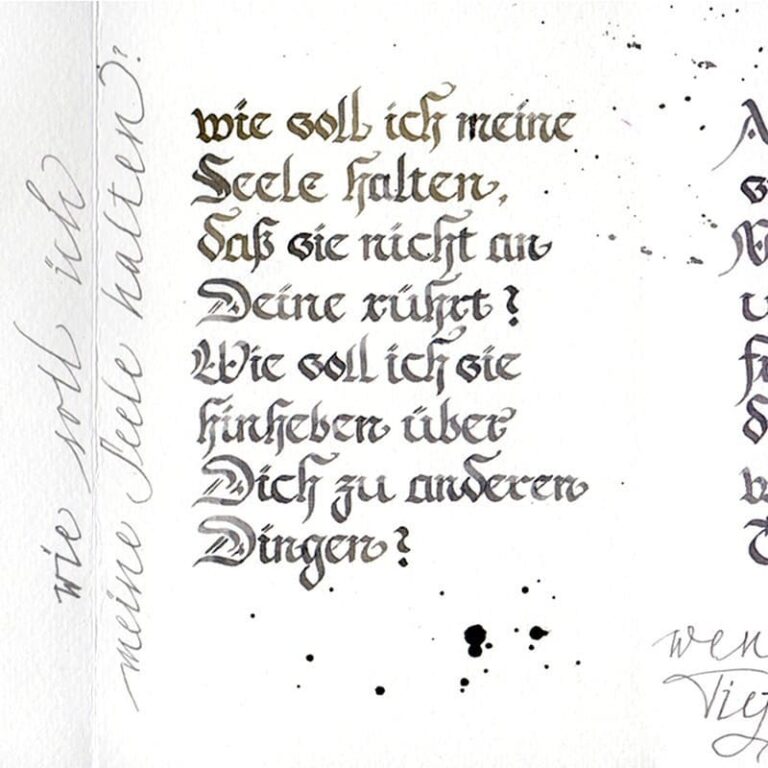 wie soll ich
meine Seele halten?
wie soll ich meine
Seele halten,
daß sie nicht an
Deine rührt?
Wie soll ich sie
hinheben über
Dich zu anderen
Dingen?